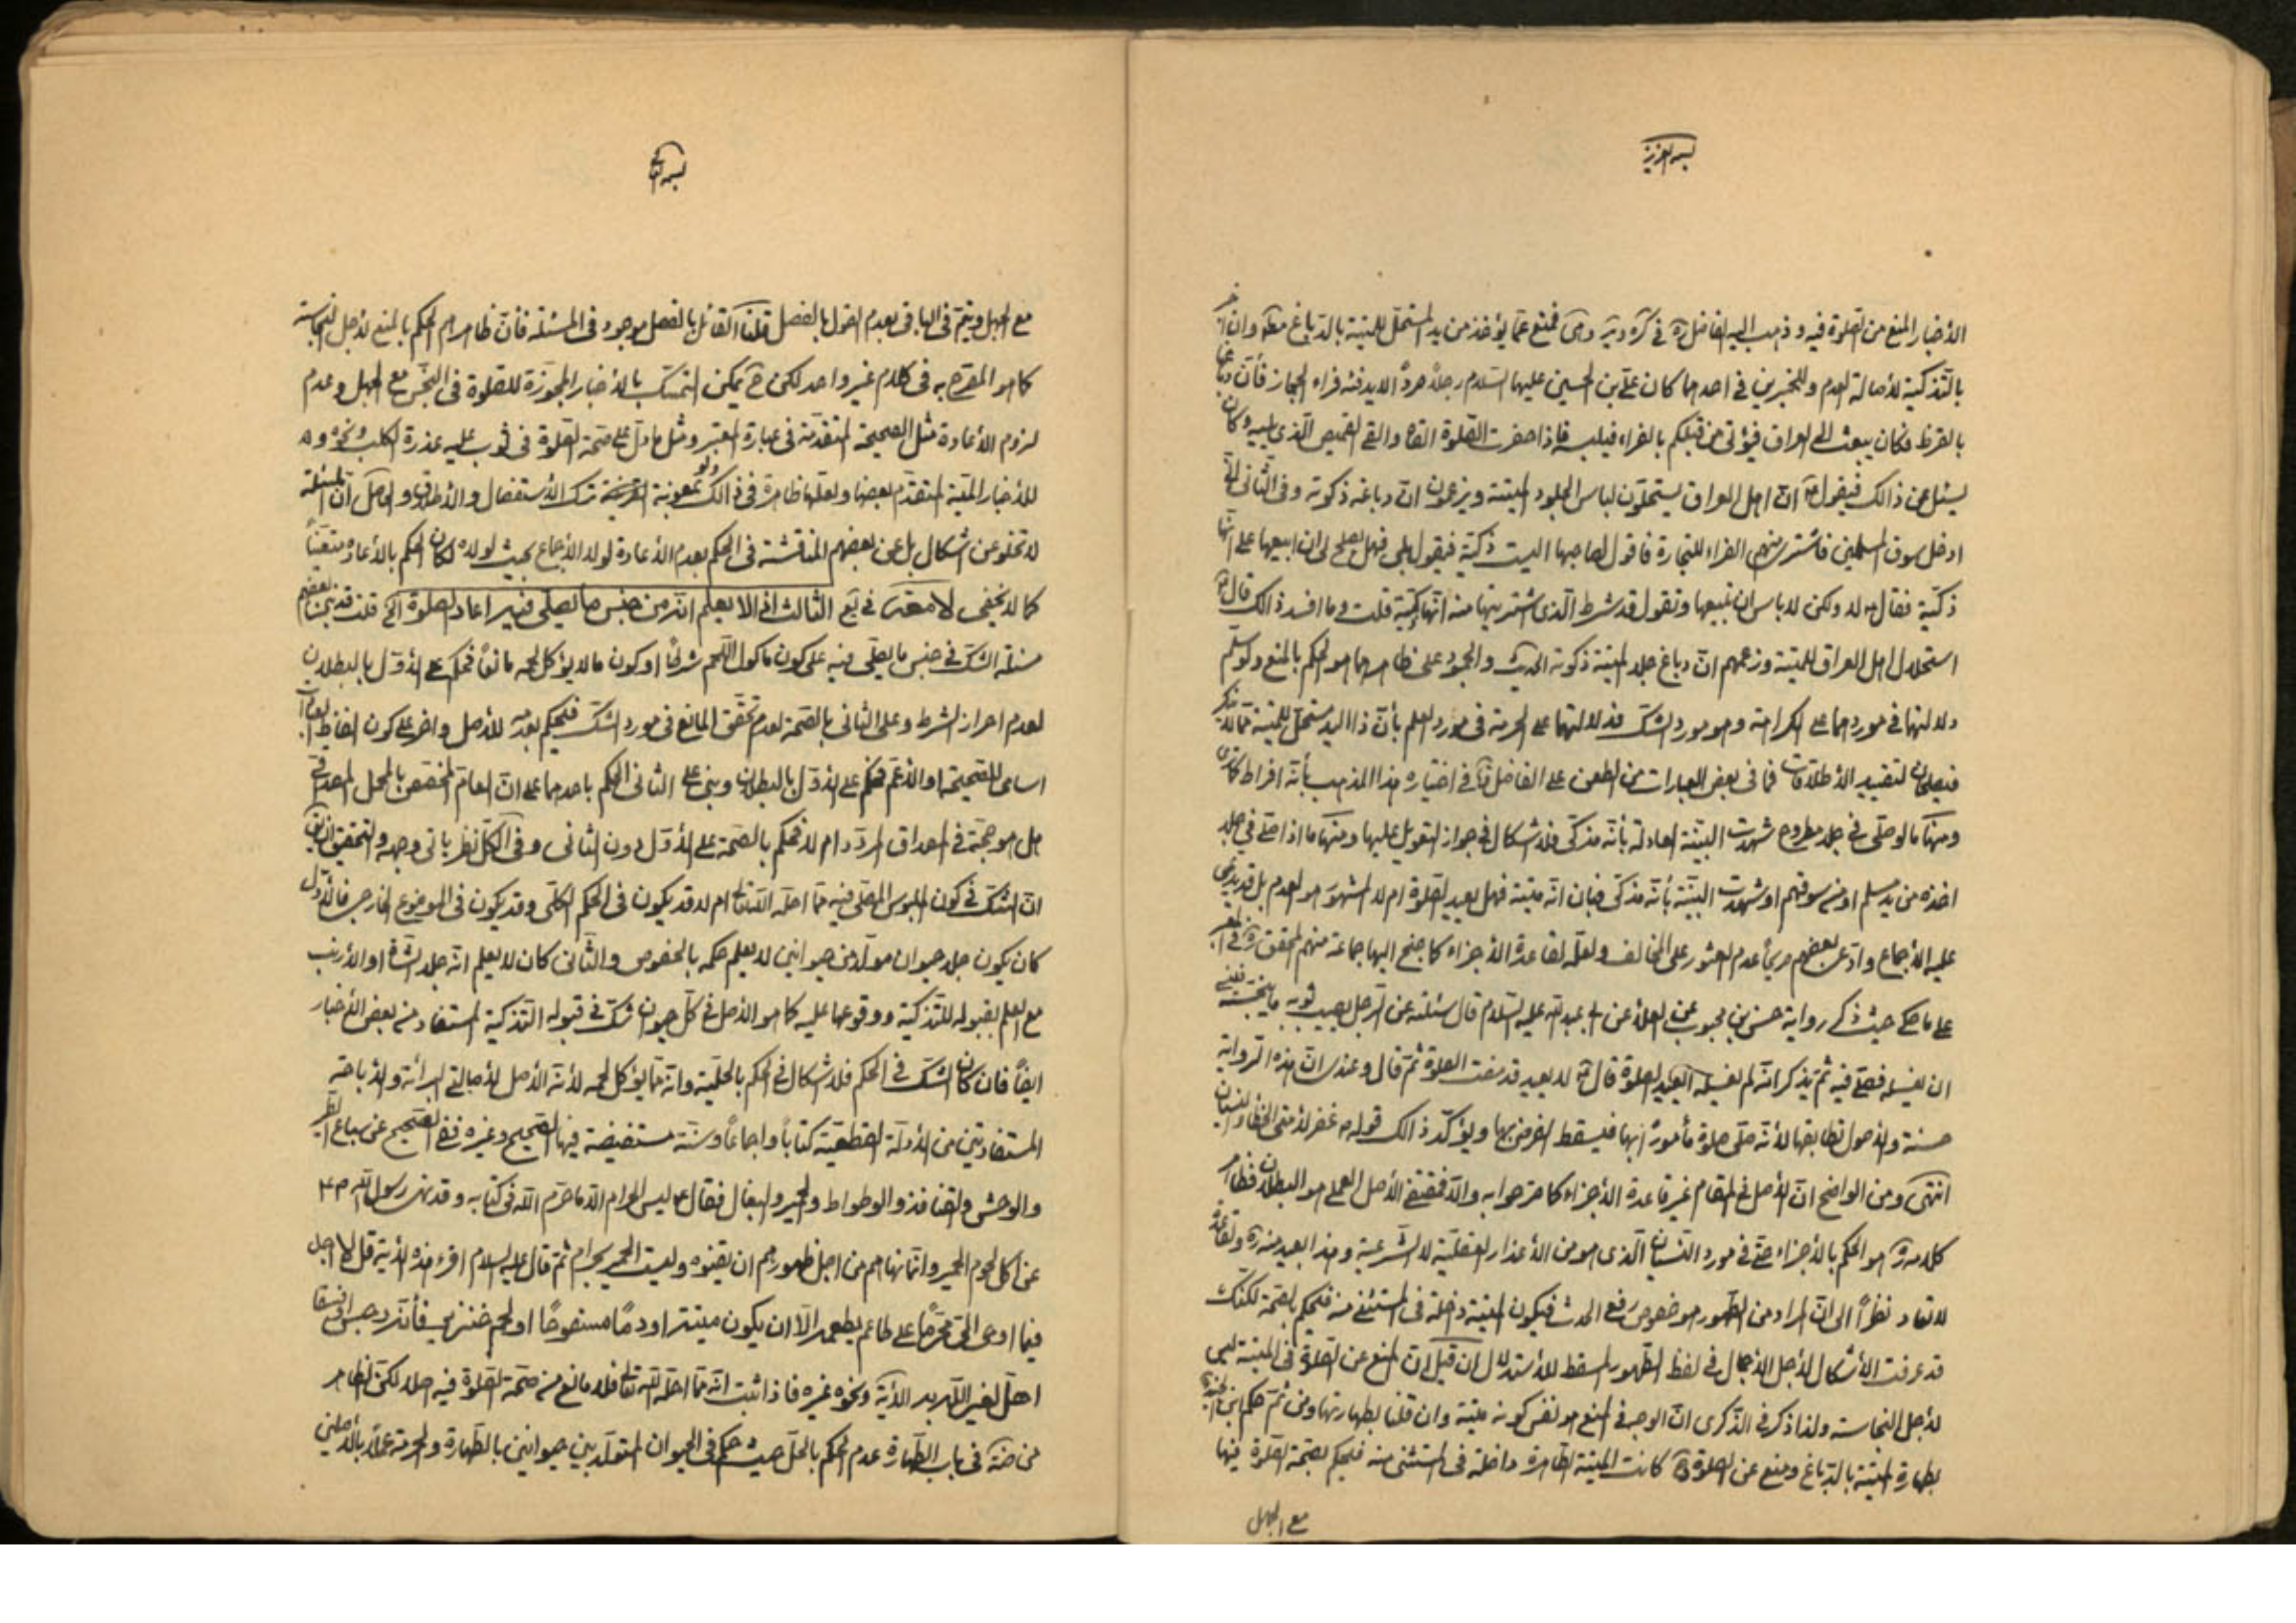 بسمه العزيز
الأخبار المنع من الصلوة فيه وذهب اليه الفاضل ره في كره وير وهى فمنع عما يؤخذ من يد المستحل للميتة بالدباغ مطلقا وان
بالتذكية لأصالة العدم وللخبرين في احدهما كان علي بن الحسين عليهما السلام رجلاً صرداً لا يدفئه فراء الحجاز فأن دباغها
بالقرظ فكان يبعث الى العراق فيؤتى من قبلكم بالفراء فيلبسه فاذا حضرت الصلوة القاه والقى القميص الذي يليه وكان
يسئل عن ذالك فيقول ان اهل العراق يستحلون لباس الجلود الميتة ويزعمون ان دباغه ذكوته وفى الثانى انى
ادخل سوق المسلمين فاشترى منهم الفراء للتجارة فاقول لصاحبها اليست ذكية فيقول بلى فهل يصلح لى ان ابيعها على انها
ذكية فقال لا ولكن لا بأس ان تبيعها وتقول قد شرط الذى اشتريتها منه انها ذكية قلت وما افسد ذالك قال
استحلال اهل العراق للميتة وزعمهم ان دباغ جلد الميتة ذكوته الحديث والجمود على ظاهرهما هو الحكم بالمنع ولو سلم
دلالتهما في موردهما على الكراهة وهو مورد الشك فدلالتهما على الحرمة فى مورد العلم بأن ذا اليد مستحل للميتة مما لا ينكر
فيصلحان لتقييد الأطلاقات فما فى بعض العبارات من الطعن على الفاضل في اختياره هذا المذهب بأنه افراط كما ترى
ومنها ما لو صلى في جلد مطروح شهدت البينة العادلة بأنه مذكى فلا اشكال في جواز التعويل عليها ومنها ما اذا صلى في جلد
اخذه من يد مسلم او من سوقهم او شهدت البينة بأنه مذكى فبان انه ميتة فهل يعيد الصلوة ام لا المشهور هو العدم بل قد يدعى
عليه الأجماع وادعى بعضهم صريحاً عدم العثور على المخالف ولعله لقاعدة الأجزاء كما جنح اليها جماعة منهم المحقق ره في المعتبر
على ما حكى حيث ذكر رواية حسن بن محبوب عن العلاء عن ابي عبد الله عليه السلام قال سئلته عن الرجل يصيب ثوبه ما ينجسه فينسى
ان يغسله فصلى فيه ثم يذكر انه لم يغسله ايعيد الصلوة قال لا يعيد قد مضت الصلوة ثم قال وعندى ان هذه الرواية
حسنة والأصول تطابقها لأنه صلى صلوة مأموراً بها فيسقط الفرض بها ويؤكد ذالك قوله ص غفر لأمتى الخطاء والنسيان
انتهى ومن الواضح ان الأصل في المقام غير قاعدة الأجزاء كما صرحوا به والا فمقتضى الأصل العملى هو البطلان فظاهر
كلامه ره هو الحكم بالأجزاء حتى فى مورد النسيان الذى هو من الأعذار العقلية لا الشرعية وهذا بعيد منه ره ولقاعدة
لا تعاد نظراً الى ان المراد من الطهور هو خصوص رفع الحدث فيكون الميتة داخلة فى المستثنى منه فيحكم بالصحة لكنك
قد عرفت الأشكال لأجل الأجمال في لفظ الطهور المسقط للأستدلال ان قيل ان المنع عن الصلوة فى الميتة ليس
لأجل النجاسة ولذا ذكر في الذكرى ان الوجه في المنع هو نفس كونه ميتة وان قلنا بطهارتها ومن ثم حكم ابن الجنيد
بطهارة الميتة بالدباغ ومنع عن الصلوة كانت الميتة الطاهرة داخلة فى المستثنى منه فليحكم بصحة الصلوة فيها
مع الجهل
مع الجهل ويتم فى الباقى بعدم القول بالفصل قلنا القائل بالفصل موجود فى المسئلة فأن ظاهرهم الحكم بالمنع لأجل النجاسة
كما هو المصرح به فى كلام غير واحد لكن يمكن التمسك بالأخبار المجوزة للصلوة فى النجس مع الجهل وعدم
لزوم الأعادة مثل الصحيحة المتقدمة فى عبارة المعتبر ومثل ما دل على صحة الصلوة فى ثوب عليه عذرة الكلب ونحوه
للأخبار المتقدم بعضها ولعلها ظاهرة فى ذالك ولو بمعونة ترك الأستفصال والأطلاق والحاصل ان المسئلة
لا تخلو عن اشكال بل عن بعضهم المناقشة فى الحكم بعدم الأعادة لولا الأجماع بحيث لولاه لكان الحكم بالأعادة متعيناً
كما لا يخفى في يع الثالث اذا لا يعلم انه من جنس ما يصلى فيه اعاد الصلوة قلت قد بنى بعضهم
مسئلة الشك في جنس ما يصلى فيه على كون ماكول اللحم شرطاً او كون ما لا يؤكل لحمه مانعاً فحكم على الأول بالبطلان
لعدم احراز الشرط وعلى الثانى بالصحة لعدم تحقق المانع فى مورد الشك فيحكم بعدمه للأصل واخر على كون الفاظ العبادات
اسامى للصحيحة او الأعم فحكم على الأول بالبطلان وبنى على الثانى الحكم باحدهما على ان العام المخصص بالمجمل المصداقى
هل هو حجة في المصداق المردد ام لا فحكم بالصحة على الأول دون الثانى وفى الكل نظر يأتى وجهه والتحقيق ان يق
ان الشك في كون الملبوس المصلى فيه مما احله الله تعالى ام لا قد يكون فى الحكم الكلى وقد يكون فى الموضوع الخارجى فالأول
كان يكون جلد حيوان مولد من حيوانين لا يعلم حكمه بالخصوص والثانى كان لا يعلم انه جلد الشاة او الأرنب
مع العلم بقبوله للتذكية ووقوعها عليه كما هو الأصل في كل حيوان شك في قبوله التذكية المستفاد من بعض الأخبار
ايضاً فان كان الشك في الحكم فلا اشكال في الحكم بالحلية وانه مما يؤكل لحمه لأنه الأصل لأصالتي البرائة والأباحة
المستفادتين من الأدلة القطعية كتاباً واجماعاً وسنة مستفيضة فيها الصحيح وغيره ففى الصحيح عن سباع الطير
والوحش والقنافذ والوطواط والحمير والبغال فقال ع ليس الحرام الا ما حرم الله فى كتابه وقد نهى رسول الله ص
عن اكل لحوم الحمير وانما نهاهم من اجل ظهورهم ان يفنوه وليست الحمير بحرام ثم قال عليه السلام اقرء هذه الأية قل لا اجد
فيما اوحى الى محرماً على طاعم يطعمه الا ان يكون ميتة او دماً مسفوحاً او لحم خنزير فأنه رجس او فسقا
اهل لغير الله به الأية ونحوه غيره فاذا ثبت انه مما احله الله تعالى فلا مانع من صحة الصلوة فيه لكن الظاهر
في باب الطهارة عدم الحكم بالحل حيث حكم فى الحيوان المتولد بين حيوانين بالطهارة والحرمة عملاً بالأصلين